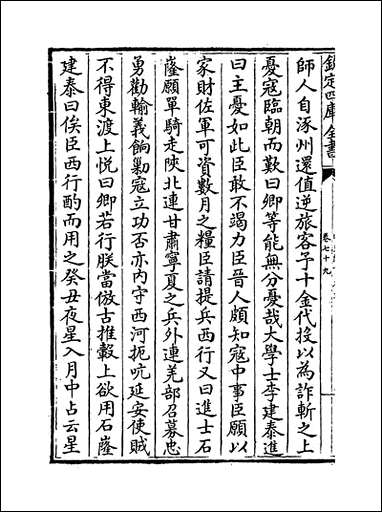 欽定四庫全書
卷七十九
師人自涿州還值逆旅客予十金代投以為詐斬之上
憂寇臨朝而歎曰卿等能無分憂哉大學士李建泰進
曰主憂如此臣敢不竭力臣晉人頗知寇中事臣願以
家財佐軍可資數月之糧臣請提兵西行又曰進士石
𡸁願單騎走陝北連甘肅寧夏之兵外連羌部召募忠
勇勸輸義餉勦寇立功否亦內守西河扼吭延安使賊
不得東渡上悅曰卿若行朕當倣古推轂上欲用石𡸁
建泰曰俟臣西行酌而用之癸丑夜星入月中占云星